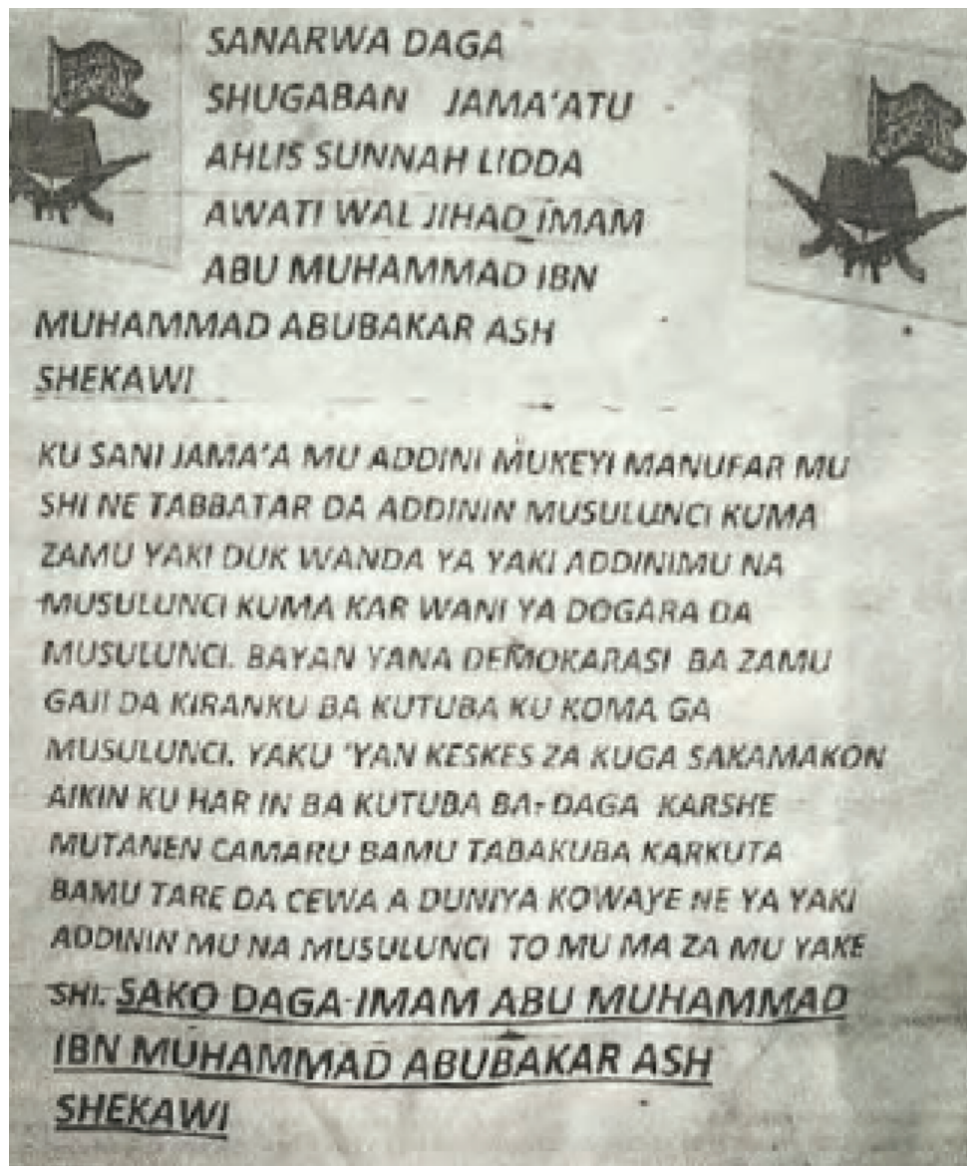 SANARWA DAGA
SHUGABAN JAMA'ATU
AHLIS SUNNAH LIDDA
AWATI WAL JIHAD IMAM
ABU MUHAMMAD IBN
MUHAMMAD ABUBAKAR ASH
SHEKAWI
KU SANI JAMA'A MU ADDINI MUKEYI MANUFAR MU
SHI NE TABBATAR DA ADDININ MUSULUNCI KUMA
ZAMU YAKI DUK WANDA YA YAKI ADDINIMU NA
MUSULUNCI KUMA KAR WANI YA DOGARA DA
MUSULUNCI. BAYAN YANA DEMOKARASI BA ZAMU
GAJI DA KIRANKU BA KUTUBA KU KOMA GA
MUSULUNCI. YAKU 'YAN KESKES ZA KUGA SAKAMAKON
AIKIN KU HAR IN BA KUTUBA BA- DAGA KARSHE
MUTANEN CAMARU BAMU TABAKUBA KARKUTA
BAMU TARE DA CEWA A DUNIYA KOWAYE NE YA YAKI
ADDININ MU NA MUSULUNCI TO MU MA ZA MU YAKE
SHI. SAKO DAGA IMAM ABU MUHAMMAD
IBN MUHAMMAD ABUBAKAR ASH
SHEKAWI